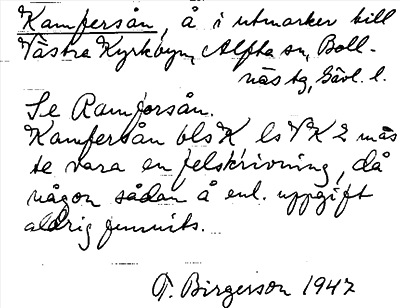 Kamfersån, å i utmarker till
Västra Kyrkbyn, Alfta sn, Boll-
näs tg, Gävl. l.
Se Ramforsån.
Kamfersån bls K ls VK 2 mås
te vara en felskrivning, då
någon sådan å enl. uppgift
aldrig funnits.
T. Birgerson 1947